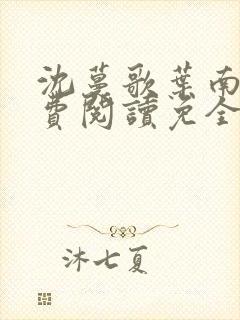 沈蔓歌葉南
費閱讀免全
沐七夏